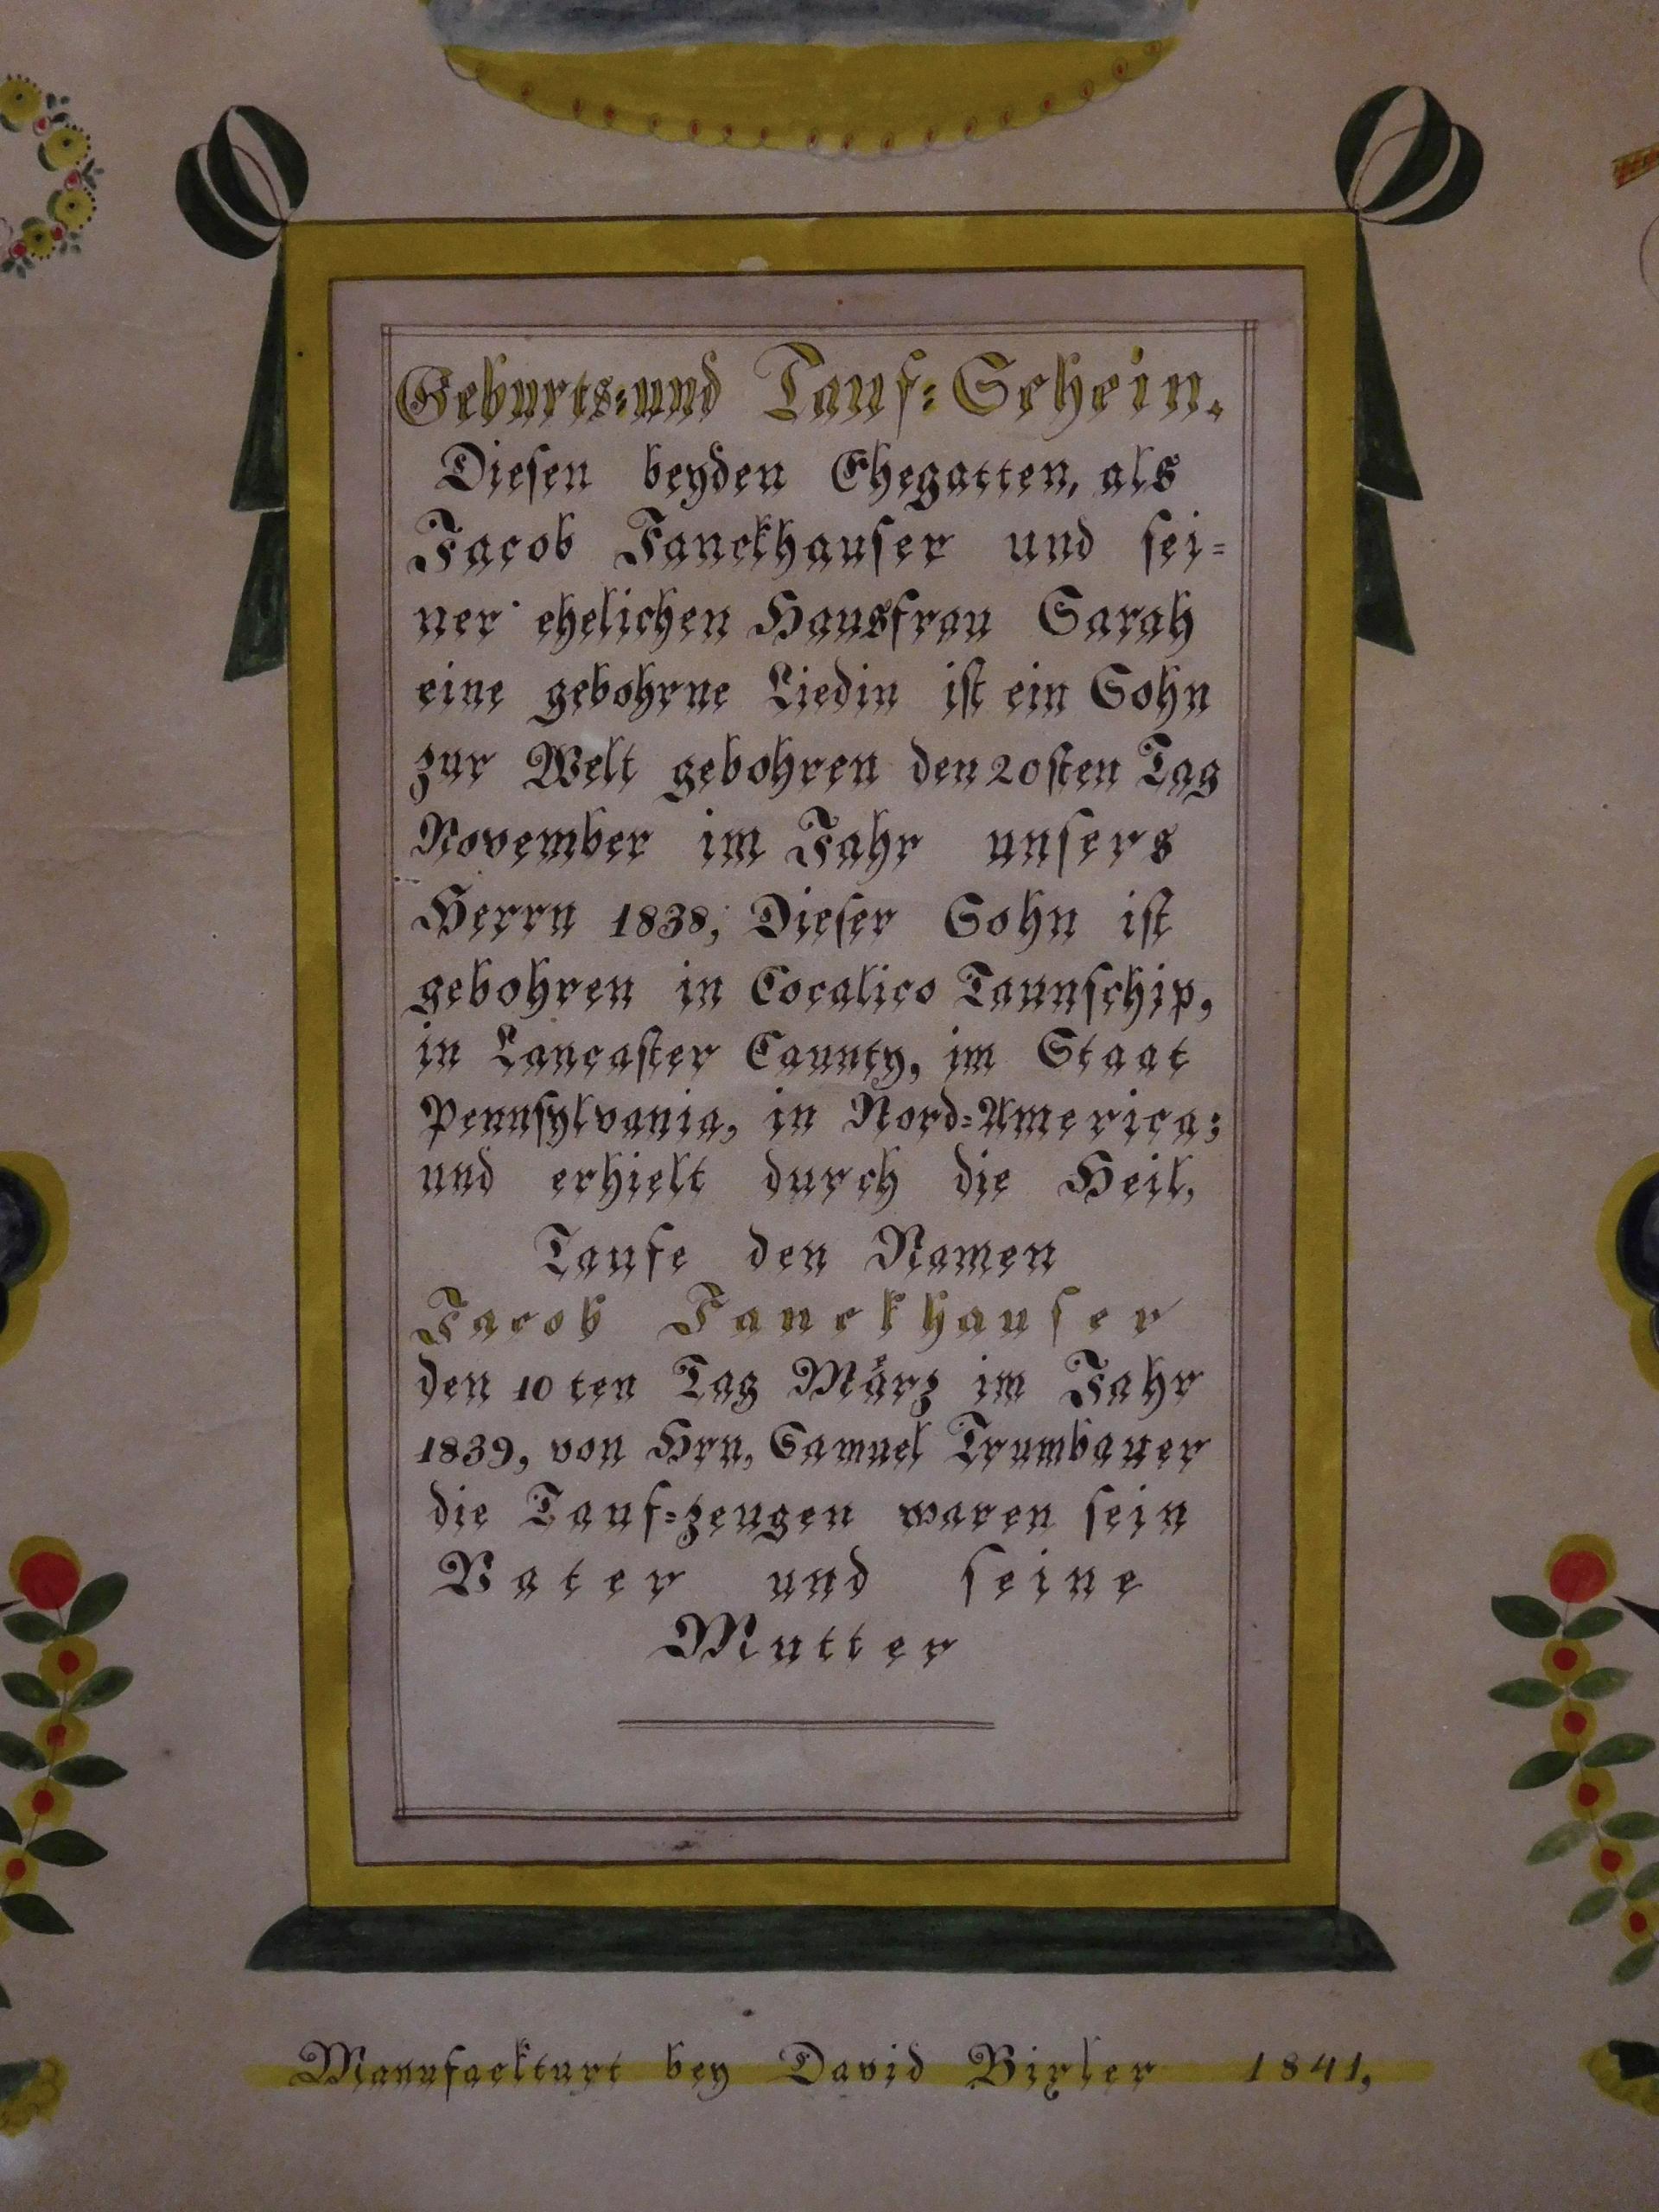 Geburts= und Tauf=Schein.
Diesen beyden Ehegatten, als
Jacob Fanckhauser und sei=
ner ehelichen Hausfrau Sarah
eine gebohrne Liedin ist ein Sohn
zur Welt gebohren den 20sten Tag
November im Jahr unsers
Herrn 1838, Dieser Sohn ist
gebohren in Cocalico Taunschip,
in Lancaster Caunty, im Staat
Pennsylvania, in Nord=America;
und erhielt durch die Heil,
Taufe den Namen
Jacob Fanckhauser
den 10ten Tag März im Jahr
1839, von Hrn, Samuel Trumbauer
die Tauf=zeugen waren sein
Vater und seine
Mutter
Manufackturt bey David Bixler 1841,